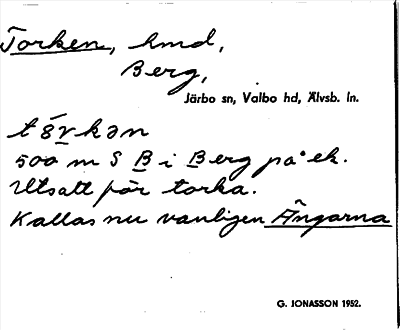 Torken, hmd,
Berg,
Järbo sn, Valbo hd, Älvsb. ln.
tɤ́rkən
500 m S B i Berg på ek.
Utsatt för torka.
Kallas nu vanligen Ängarna
G. JONASSON 1952.